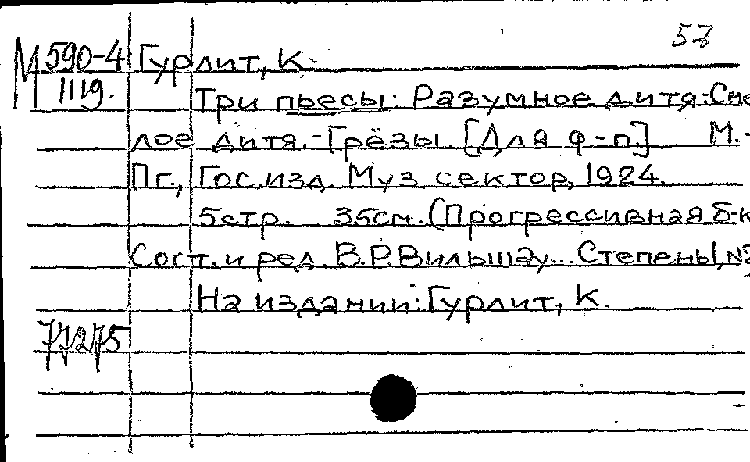 57
М 590-4 Гурлит, К.
1119.
Три пьесы: Разумное дитя.-Сме
лое дитя.-Грёзы. [Для ф-п.] М.-
Пг., Гос.изд. Муз сектор, 1924.
5стр. 35см. (Прогрессивная б-к
Сост. и ред. В.Р.Вильшау. Степень I, №
На издании: Гурлит, К.
77275